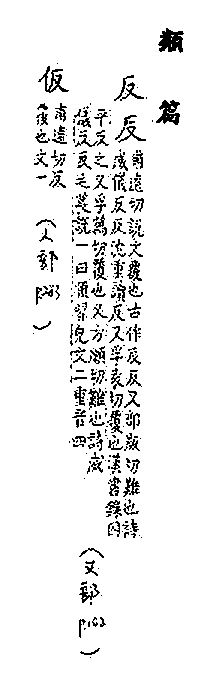 類篇
反反甫遠切說文覆也古作反反又部版切難也詩
威儀反反沈重讀反又孚袁切覆也漢書錄囚
平反之又孚萬切覆也又方願切難也詩威
儀反反毛萇說一曰順習皃文二重音四
(又部 p.102)
仮甫遠切反
也文一
(人部)